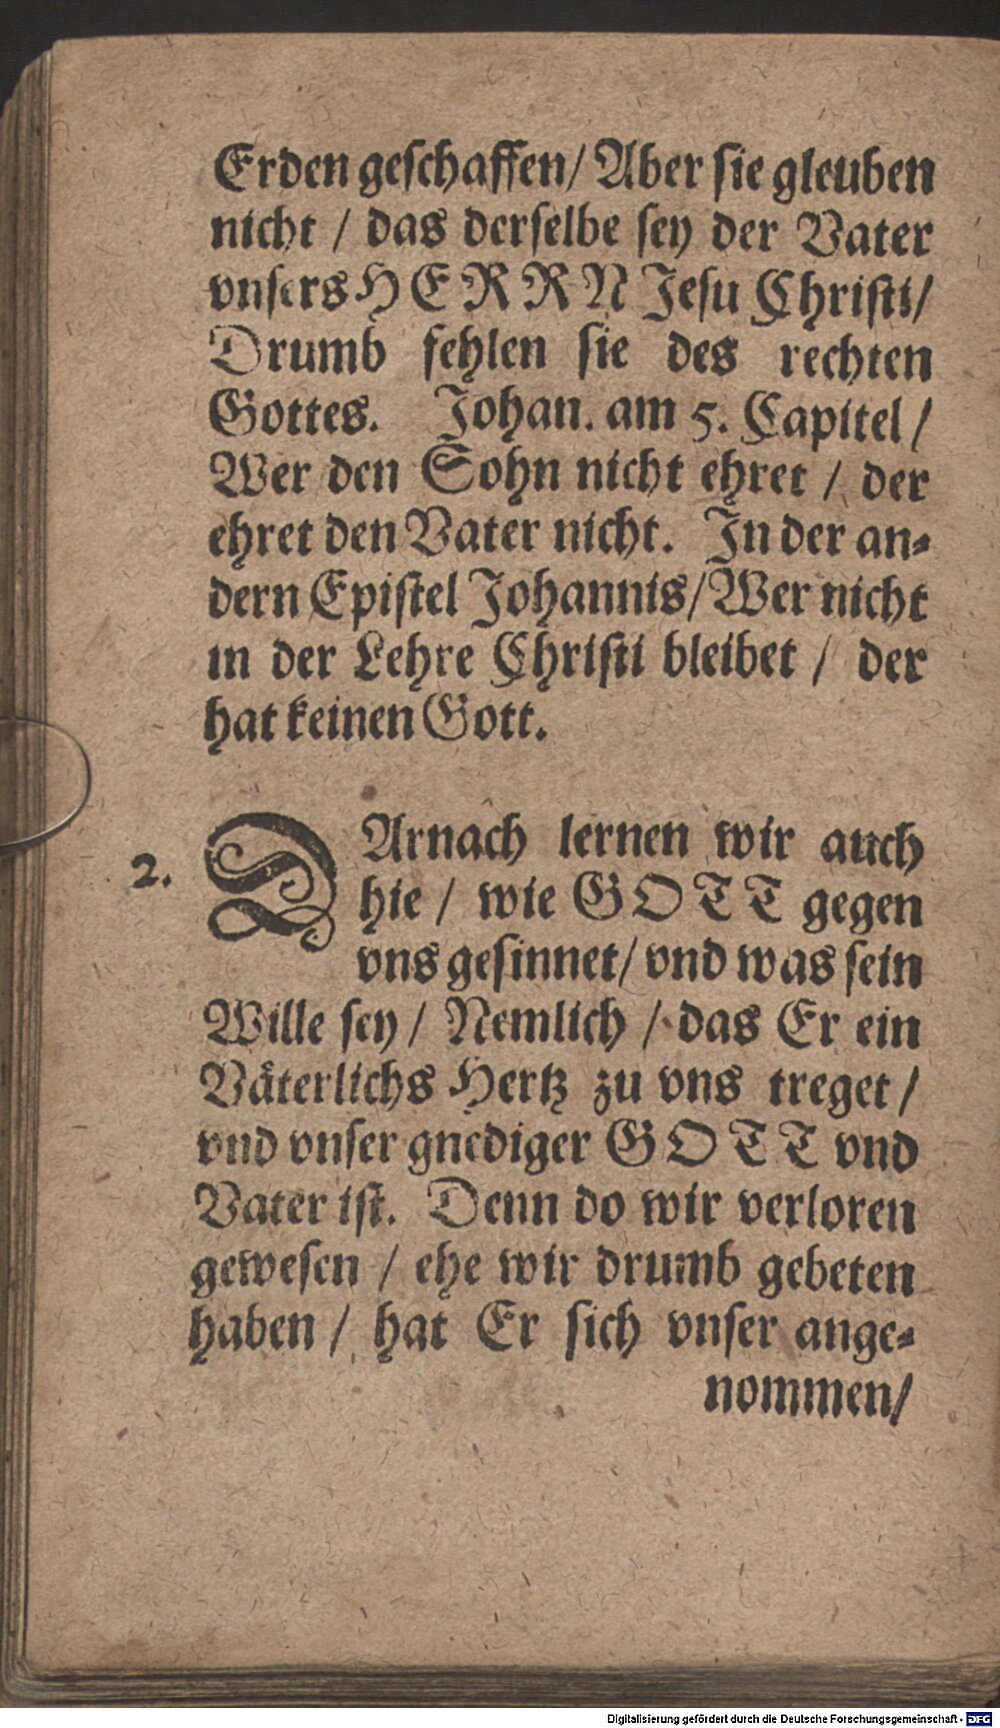 Erden geſchaffen/ Aber ſie gleuben
nicht / das derſelbe ſey der Vater
vnſers HERRN Jeſu Chriſti/
Drumb fehlen ſie des rechten
Gottes. Johan. am 5. Capitel /
Wer den Sohn nicht ehret / der
ehret den Vater nicht. In der an⸗
dern Epiſtel Johannis/ Wer nicht
in der Lehre Chriſti bleibet / der
hat keinen Gott.
2. DArnach lernen wir auch
hie / wie GOTT gegen
vns geſinnet/ vnd was ſein
Wille ſey / Nemlich / das Er ein
Vaͤterlichs Hertz zu vns treget /
vnd vnſer gnediger GOTT vnd
Vater iſt. Denn do wir verloren
geweſen / ehe wir drumb gebeten
haben / hat Er ſich vnſer ange⸗
nommen/
Digitalisierung gefördert durch die Deutsche Forschungsgemeinschaft - DFG